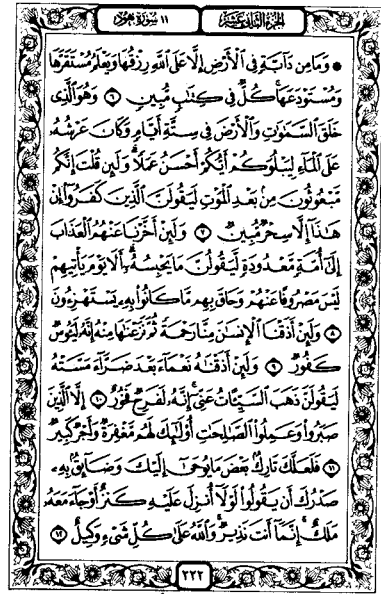 الجزء الثاني عشر ١١ سورة هود
۞ وَمَا مِن دَآبَّةٍ فِي ٱلْأَرْضِ إِلَّا عَلَى ٱللَّهِ رِزْقُهَا وَيَعْلَمُ مُسْتَقَرَّهَا
وَمُسْتَوْدَعَهَا ۚ كُلٌّ فِي كِتَٰبٍ مُّبِينٍ ٦ وَهُوَ ٱلَّذِي
خَلَقَ ٱلسَّمَٰوَٰتِ وَٱلْأَرْضَ فِي سِتَّةِ أَيَّامٍ وَكَانَ عَرْشُهُۥ
عَلَى ٱلْمَآءِ لِيَبْلُوَكُمْ أَيُّكُمْ أَحْسَنُ عَمَلًا ۗ وَلَئِن قُلْتَ إِنَّكُم
مَّبْعُوثُونَ مِنۢ بَعْدِ ٱلْمَوْتِ لَيَقُولَنَّ ٱلَّذِينَ كَفَرُوٓا۟ إِنْ
هَٰذَآ إِلَّا سِحْرٌ مُّبِينٌ ٧ وَلَئِنْ أَخَّرْنَا عَنْهُمُ ٱلْعَذَابَ
إِلَىٰٓ أُمَّةٍ مَّعْدُودَةٍ لَّيَقُولُنَّ مَا يَحْبِسُهُۥٓ ۗ أَلَا يَوْمَ يَأْتِيهِمْ
لَيْسَ مَصْرُوفًا عَنْهُمْ وَحَاقَ بِهِم مَّا كَانُوا۟ بِهِۦ يَسْتَهْزِءُونَ
٨ وَلَئِنْ أَذَقْنَا ٱلْإِنسَٰنَ مِنَّا رَحْمَةً ثُمَّ نَزَعْنَٰهَا مِنْهُ إِنَّهُۥ لَيَـُٔوسٌ
كَفُورٌ ٩ وَلَئِنْ أَذَقْنَٰهُ نَعْمَآءَ بَعْدَ ضَرَّآءَ مَسَّتْهُ
لَيَقُولَنَّ ذَهَبَ ٱلسَّيِّـَٔاتُ عَنِّيٓ ۚ إِنَّهُۥ لَفَرِحٌ فَخُورٌ ١٠ إِلَّا ٱلَّذِينَ
صَبَرُوا۟ وَعَمِلُوا۟ ٱلصَّٰلِحَٰتِ أُو۟لَٰٓئِكَ لَهُم مَّغْفِرَةٌ وَأَجْرٌ كَبِيرٌ
١١ فَلَعَلَّكَ تَارِكٌۢ بَعْضَ مَا يُوحَىٰٓ إِلَيْكَ وَضَآئِقٌۢ بِهِۦ
صَدْرُكَ أَن يَقُولُوا۟ لَوْلَآ أُنزِلَ عَلَيْهِ كَنزٌ أَوْ جَآءَ مَعَهُۥ
مَلَكٌ ۚ إِنَّمَآ أَنتَ نَذِيرٌ ۚ وَٱللَّهُ عَلَىٰ كُلِّ شَيْءٍ وَكِيلٌ ١٢
٢٢٢